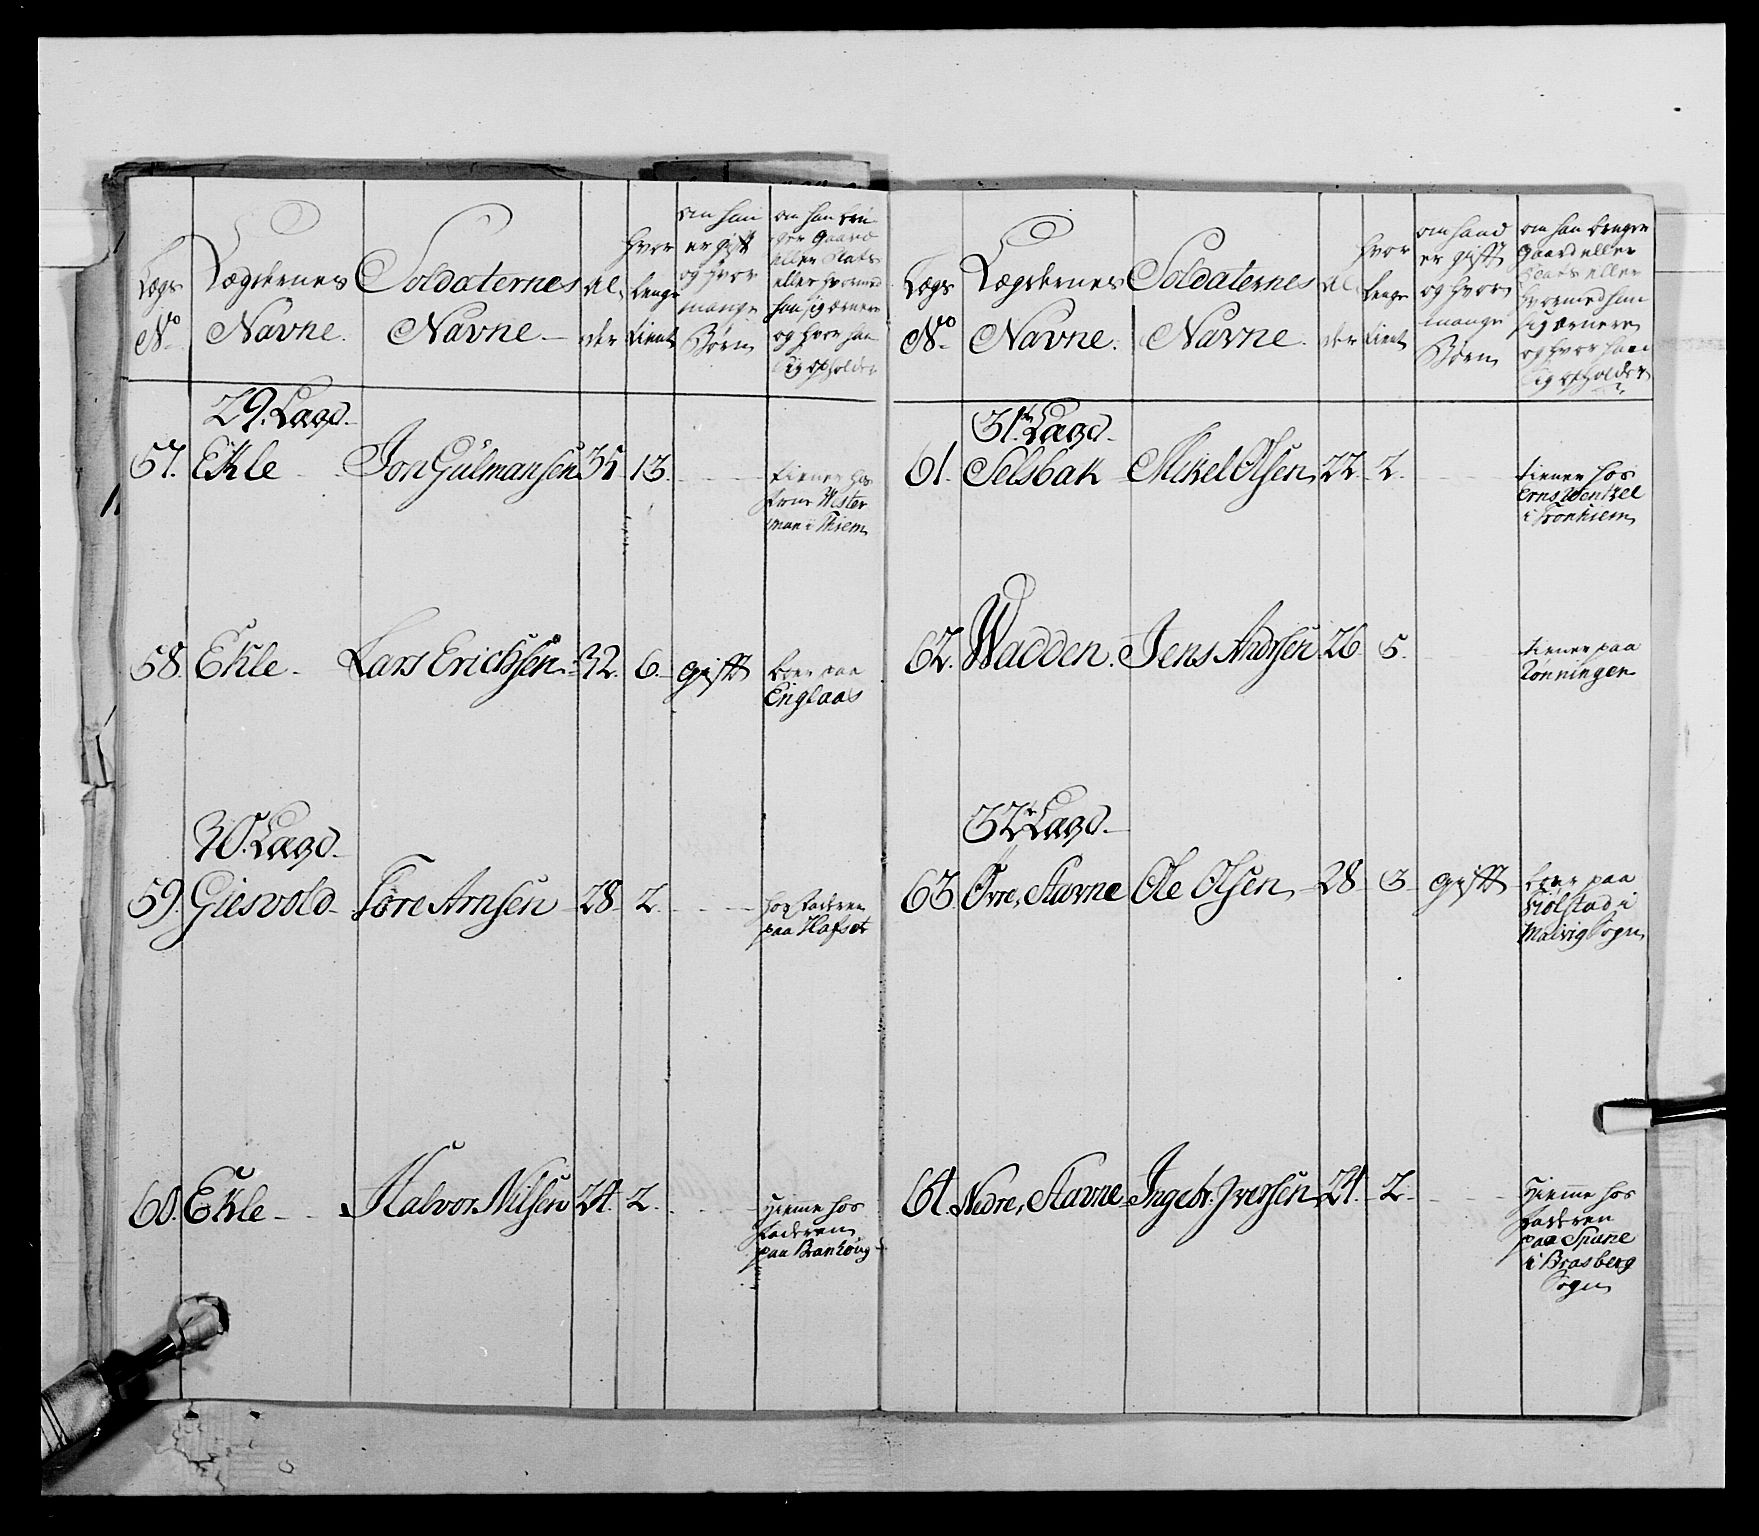 Lægs
No
Lægdernes
Navne.
Soldaternes
Navne.
Al-
der
hvor
lenge
tient
om han
er gift
og hvor
mange
Børn
om han bru-
ger Gaard
eller Plads
eller hvormed
han sig ærnere
og hvor han
sig opholder
29. Lægd.
57. Ekle Jon Gulmansen 35 13.
tiener hos
Westerman i Thiem
58. Ekle Lars Erichsen 32. 6. gift
boer paa
Englaas
30. Lægd.
59. Giesvold Tore Arnsen 28. 2.
hos Faderen
paa Hafset
60. Ekle Halvor Nilsen 24. 2.
Hieme hos
Faderen
paa Brankoug
Lægs
No
Lægdernes
Navne.
Soldaternes
Navne.
Al-
der
hvor
lenge
tient
om hand
er gift
og hvor
mange
Børn
om han bruger
Gaard eller
Plads eller
hvormed han
sig ærnere
og hvor han
sig opholder
31te Lægd.
61. Selsbak Mikel Olsen 22. 2.
tiener hos
Erns Wentzel
i Tronhiem
62. Wadden. Jens Andrsen 26 5.
tiener paa
Rønningen
32te Lægd.
63. Øvre, Stavne Ole Olsen 28 3 gift
boer paa
Hiølstad i
Malvig Sogn
64. Nedre, Stavne Ingebr. Iversen 24. 2.
Hieme hos
Faderen
paa Spane
i Brasberg
Sogn